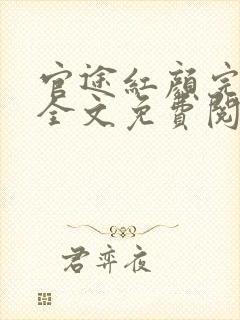 官途紅顏完
全文免費閱
君弈夜